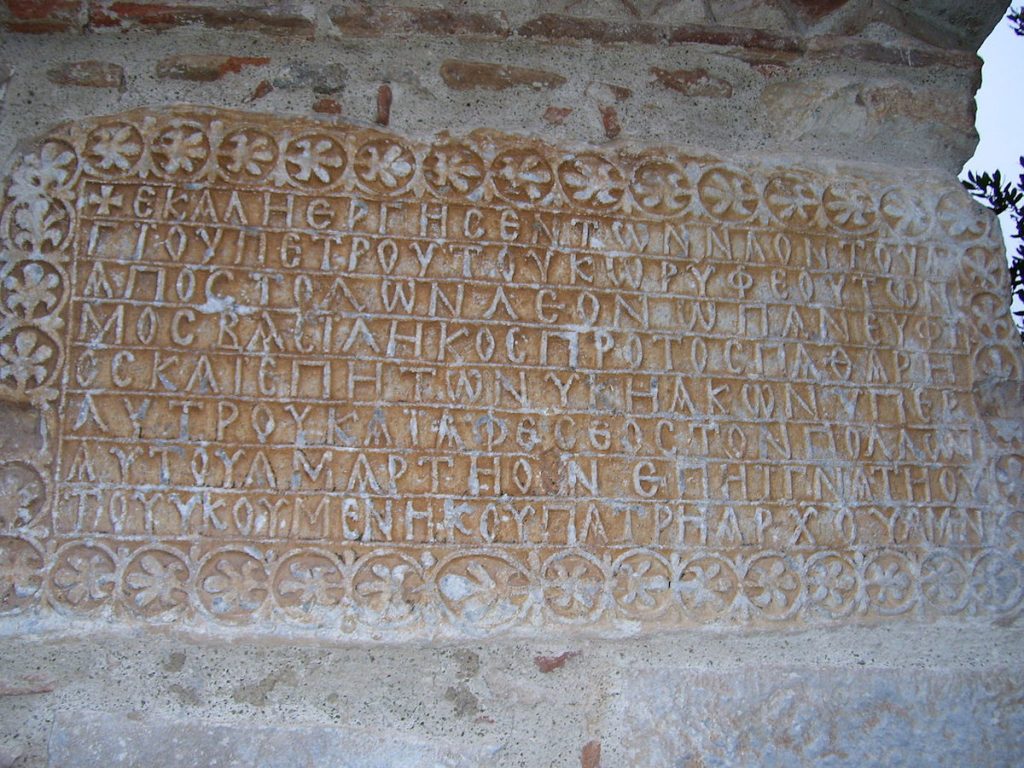 ✠ ΕΚΑΛΗΕΡΓΗΣΕΝ ΤΩΝ ΝΑΟΝ ΤΟΥ Α
ΓΙΟΥ ΠΕΤΡΟΥ ΤΟΥ ΚΩΡΥΦΕΟΥ ΤΩΝ
ΑΠΟΣΤΟΛΩΝ ΛΕΟΝ Ω ΠΑΝΕΥΦΙ
ΜΟΣ ΒΑΣΙΛΗΚΟΣ ΠΡΟΤΟΣΠΑΘΑΡΗ
ΟΣ ΚΑΙ ΕΠΗ ΤΩΝ ΥΚΗΑΚΩΝ ΥΠΕΡ
ΛΥΤΡΟΥ ΚΑΙ ΑΦΕΣΕΟΣ ΤΟΝ ΠΟΛΛΩΝ
ΑΥΤΟΥ ΑΜΑΡΤΗΟΝ ΕΠΗ ΙΓΝΑΤΗΟΥ
ΤΟΥ ΥΚΟΥΜΕΝΗΚΟΥ ΠΑΤΡΗΑΡΧΟΥ ΑΜΗΝ